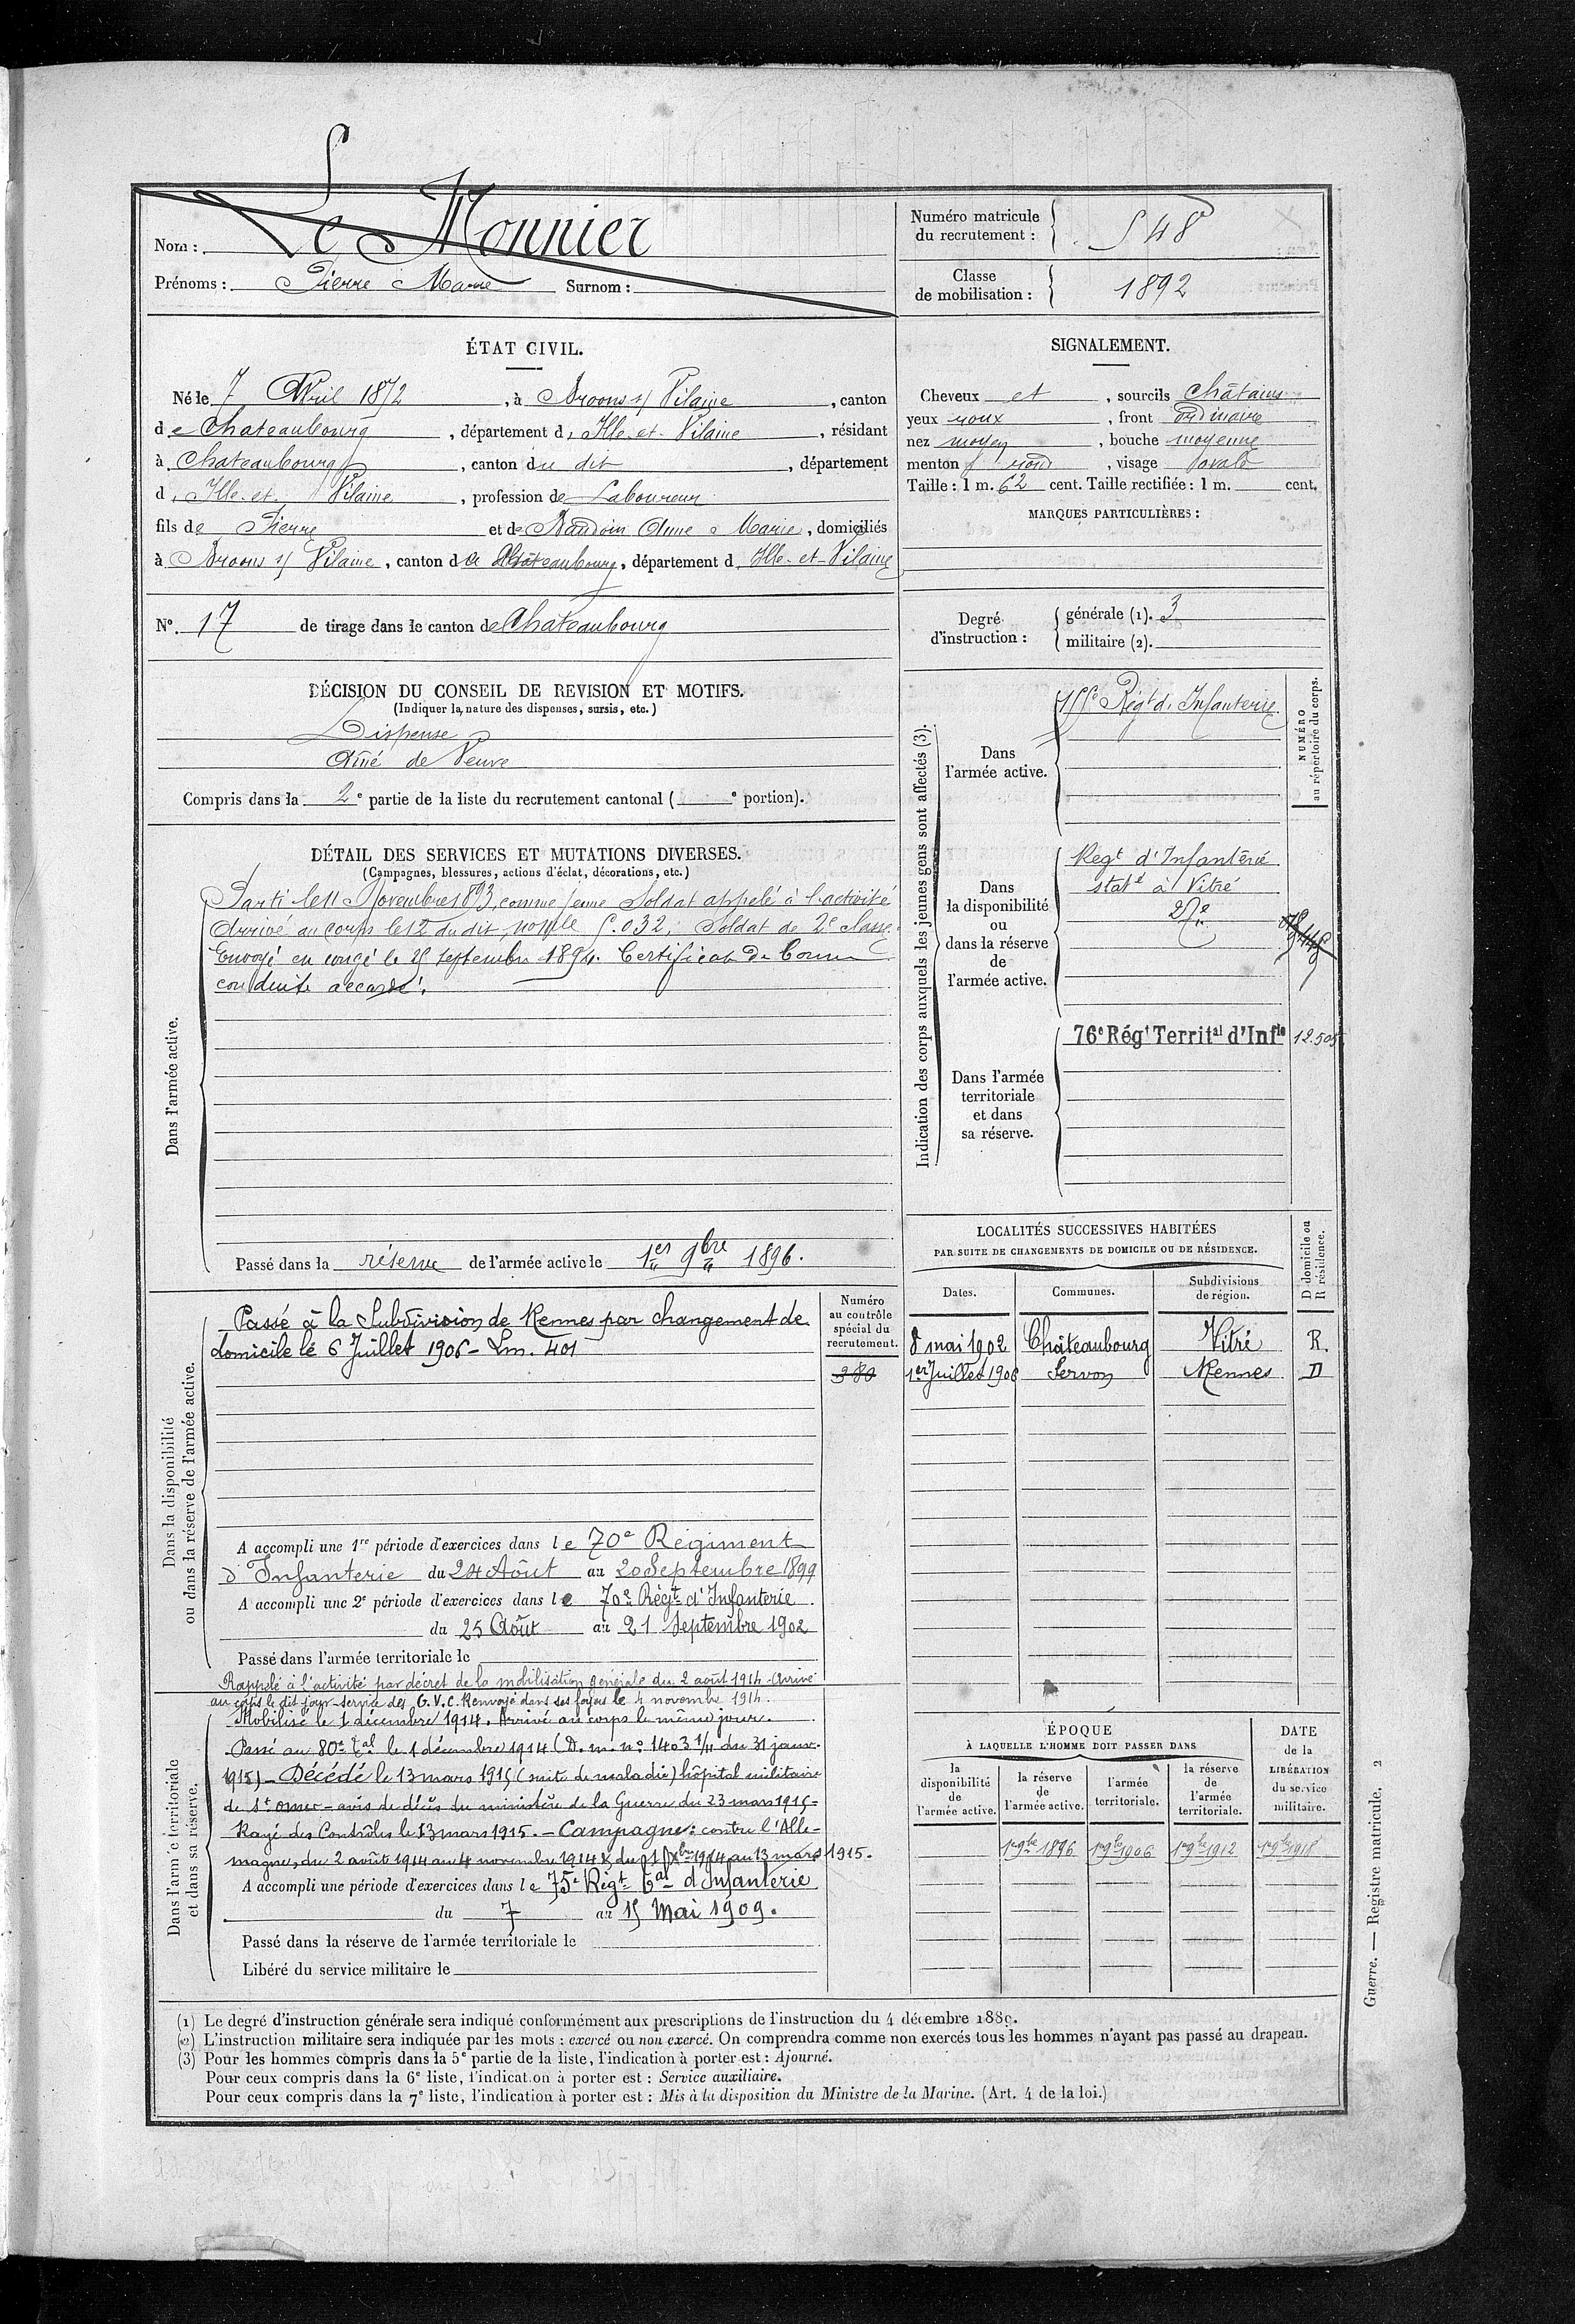 Le Monnier
Nom :
Prénoms : Pierre Marie Surnom :
Numéro matricule du recrutement : 548
Classe de mobilisation : 1892
ÉTAT CIVIL.
Né le 7 Avril 1872, à Broons s/ Vilaine, canton
de Chateaubourg, département d'Ille-et-Vilaine, résidant
à Chateaubourg, canton du dit, département
d'Ille-et-Vilaine, profession de Laboureur
fils de Pierre et de Baudoin Anne Marie, domiciliés
à Broons s/ Vilaine, canton de Châteaubourg, département d'Ille-et-Vilaine
N° 17 de tirage dans le canton de Chateaubourg
DÉCISION DU CONSEIL DE REVISION ET MOTIFS.
(Indiquer la nature des dispenses, sursis, etc.)
Dispense
Ainé de Veuve
Compris dans la 2e partie de la liste du recrutement cantonal ( e portion).
DÉTAIL DES SERVICES ET MUTATIONS DIVERSES.
(Campagnes, blessures, actions d'éclat, décorations, etc.)
Dans l'armée active.
Parti le 11 Novembre 1893, comme jeune Soldat appelé à l'activité
Arrivé au corps le 12 du dit, no mle 5.032, Soldat de 2e classe.
Envoyé en congé le 25 septembre 1894. Certificat de bonne
conduite accordé.
Passé dans la réserve de l'armée active le 1er 9bre 1896.
Dans la disponibilité
ou dans la réserve de l'armée active.
Numéro
au contrôle
spécial du
recrutement.
380
Passé à la Subdivision de Rennes par changement de
domicile le 6 Juillet 1906 - Lm. 401
A accompli une 1re période d'exercices dans le 70e Régiment
d'Infanterie du 24 Aôut au 20 Septembre 1899
A accompli une 2e période d'exercices dans le 70e Régt d'Infanterie
du 25 Août au 21 Septembre 1902
Passé dans l'armée territoriale le
Rappelé à l'activité par décret de la mobilisation générale du 2 août 1914. Arrivé
au corps le dit jour service des G.V.C. Renvoyé dans ses foyers le 4 novembre 1914.
Dans l'armée territoriale
et dans sa réserve.
Mobilisé le 1 décembre 1914. Arrivé au corps le même jour.
Passé au 80e tal le 1 décembre 1914 (D. m. no 1403 1/11 du 31 janv.
1915) - Décédé le 13 mars 1915 (suite de maladie) hôpital militaire
de St Omer - avis de décès du ministère de la Guerre du 23 mars 1915 -
Rayé des Contrôles le 13 mars 1915. - Campagne : contre l'Alle-
magne, du 2 août 1914 au 4 novembre 1914 & du 1 Xbre 1914 au 13 mars 1915.
A accompli une période d'exercices dans le 75e Régt tal d'Infanterie
du 7 au 15 Mai 1909.
Passé dans la réserve de l'armée territoriale le
Libéré du service militaire le
SIGNALEMENT.
Cheveux et, sourcils châtains
yeux roux, front ordinaire
nez moyen, bouche moyenne
menton rond, visage ovale
Taille : 1 m. 62 cent. Taille rectifiée : 1 m. cent.
MARQUES PARTICULIÈRES :
Degré d'instruction : générale (1). 3
militaire (2).
Indication des corps auxquels les jeunes gens sont affectés (3).
NUMÉRO
au répertoire du corps.
Dans
l'armée active.
115e Régt d'Infanterie
Dans
la disponibilité
ou
dans la réserve
de
l'armée active.
Regt d'Infanterie
statné à Vitré
Dans l'armée
territoriale
et dans
sa réserve.
76e Régt Territal d'Infie 12.505
LOCALITÉS SUCCESSIVES HABITÉES
PAR SUITE DE CHANGEMENTS DE DOMICILE OU DE RÉSIDENCE.
Dates. Communes. Subdivisions de région. D domicile ou R résidence.
8 mai 1902 Châteaubourg Vitré R.
1er Juillet 1906 Servon Rennes D
ÉPOQUE
À LAQUELLE L'HOMME DOIT PASSER DANS
la disponibilité de l'armée active.
la réserve de l'armée active.
l'armée territoriale.
la réserve de l'armée territoriale.
DATE de la LIBÉRATION du service militaire.
1er 9bre 1896 1er 9bre 1906 1er 9bre 1912 1er 9bre 1918
Guerre. — Registre matricule. 2
(1) Le degré d'instruction générale sera indiqué conformément aux prescriptions de l'instruction du 4 décembre 1889.
(2) L'instruction militaire sera indiquée par les mots : exercé ou non exercé. On comprendra comme non exercés tous les hommes n'ayant pas passé au drapeau.
(3) Pour les hommes compris dans la 5e partie de la liste, l'indication à porter est : Ajourné.
Pour ceux compris dans la 6e liste, l'indication à porter est : Service auxiliaire.
Pour ceux compris dans la 7e liste, l'indication à porter est : Mis à la disposition du Ministre de la Marine. (Art. 4 de la loi.)